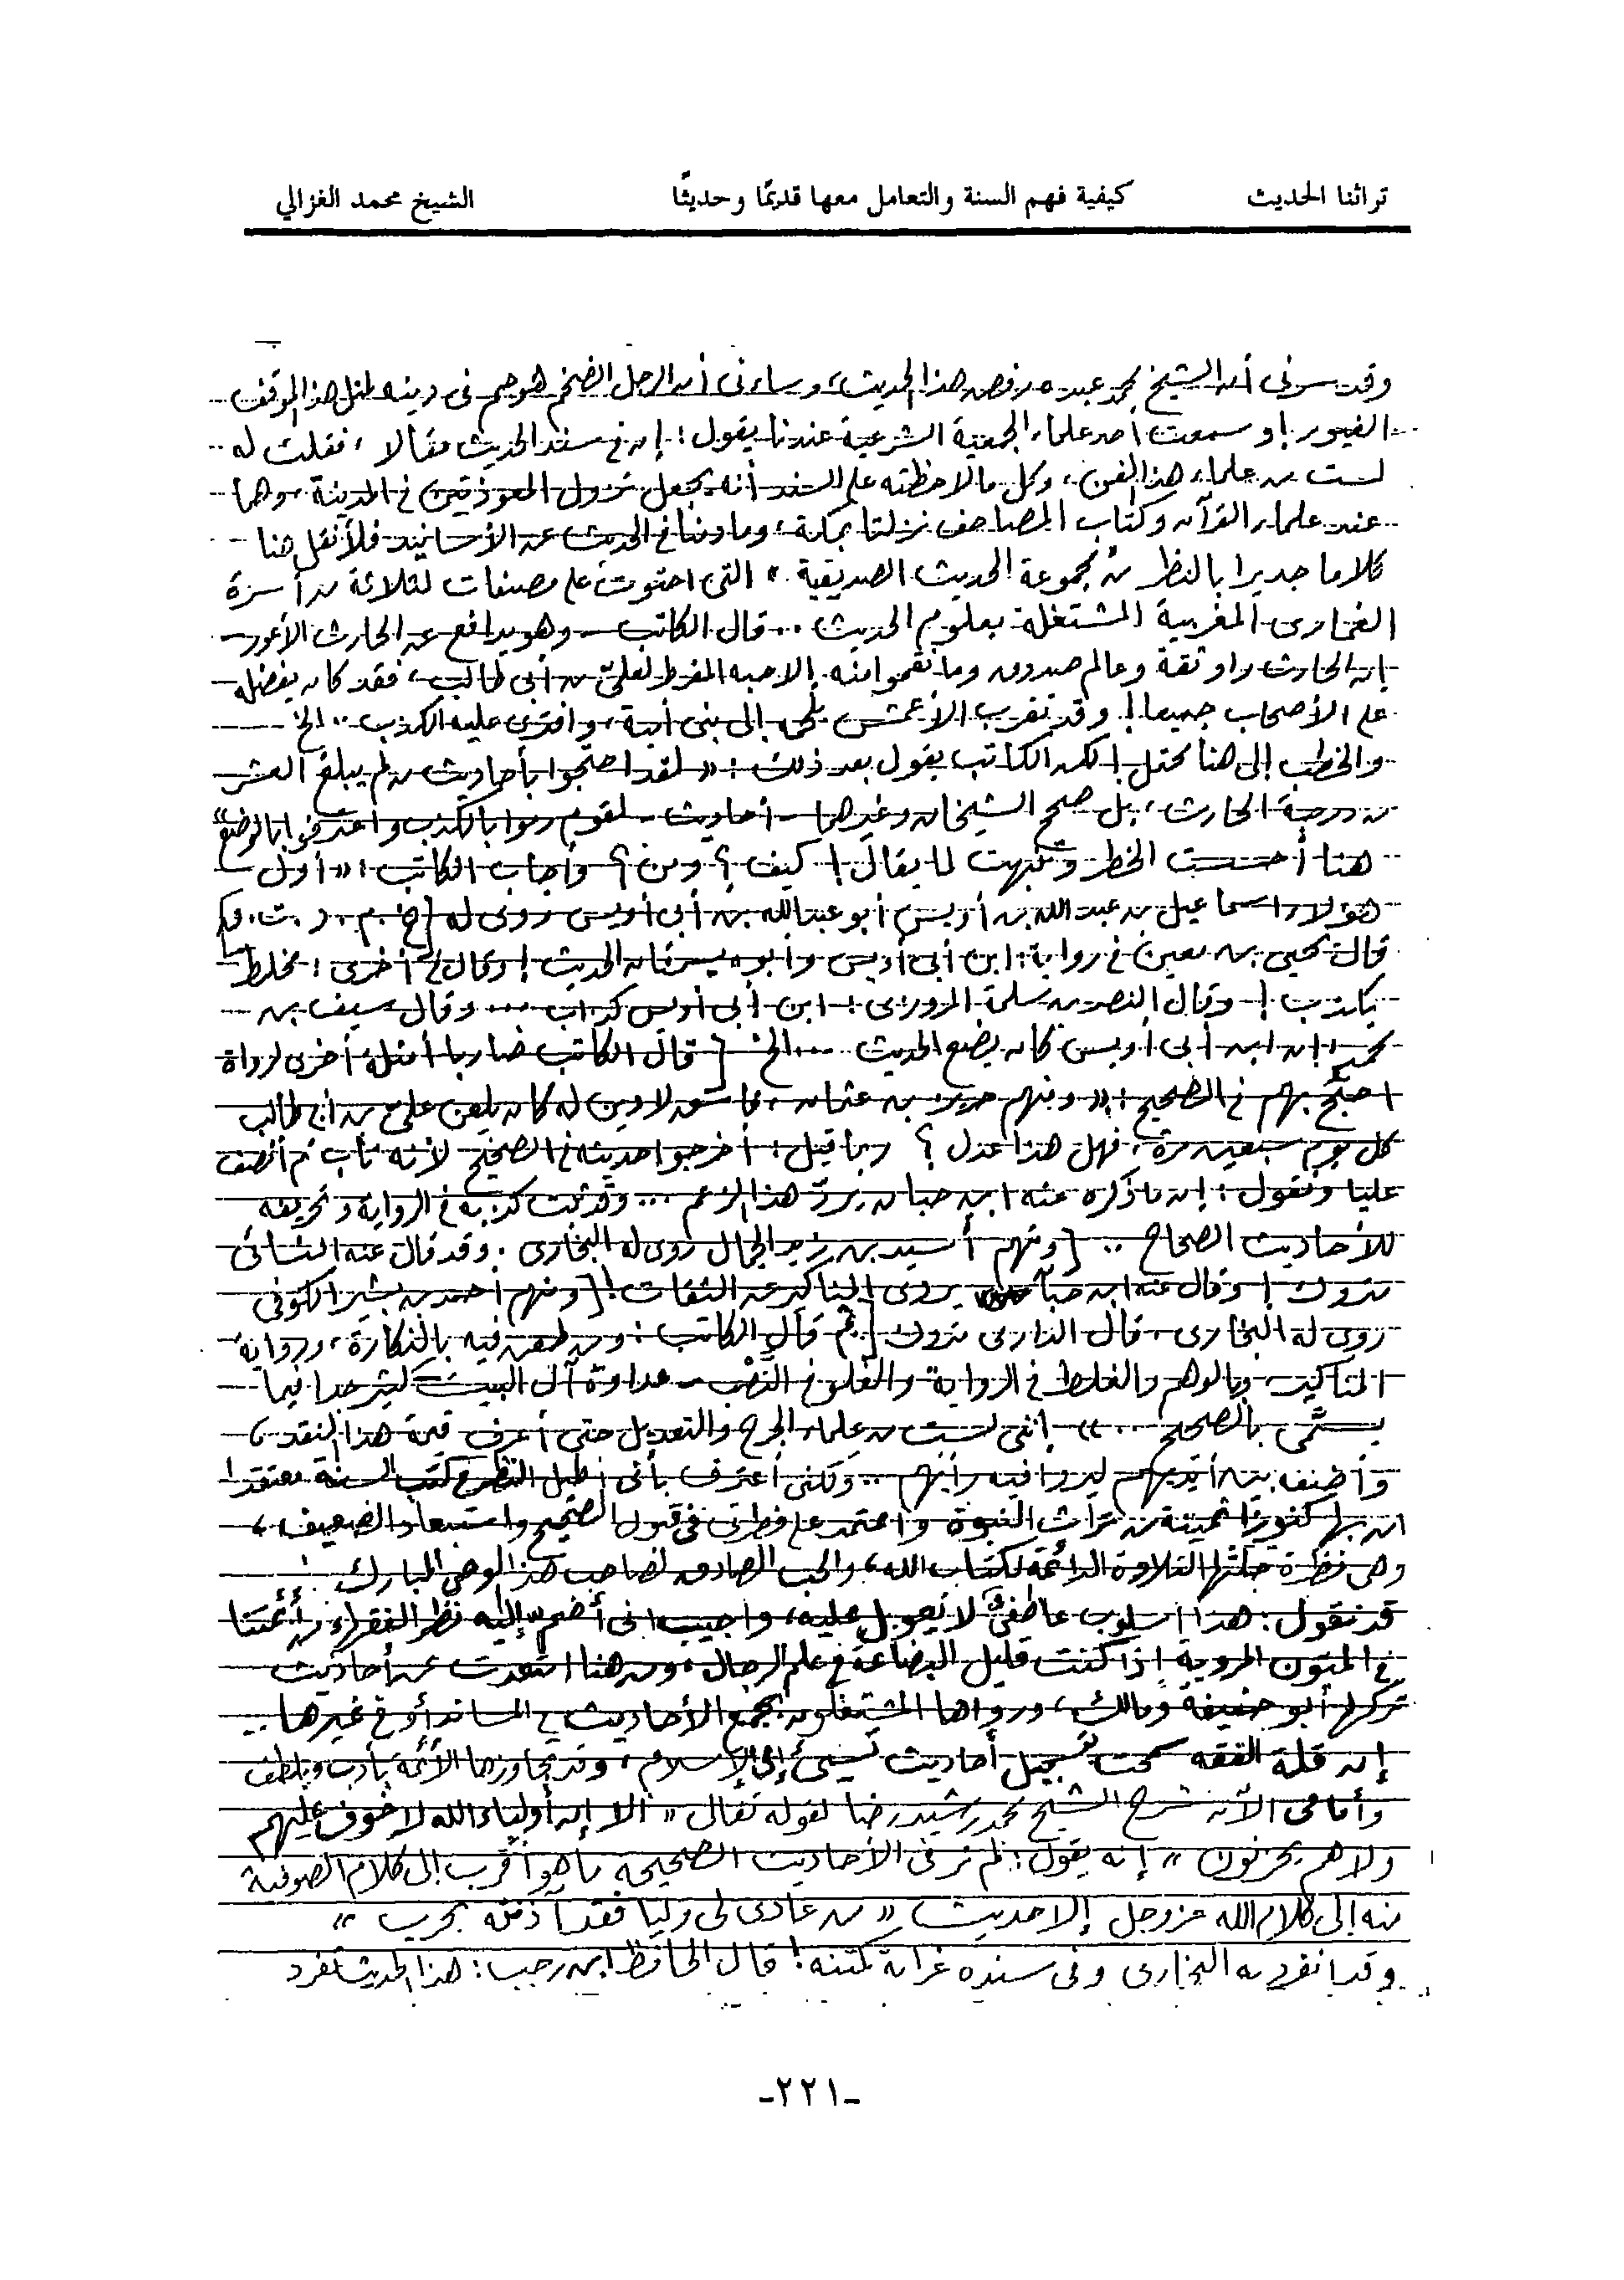 تراثنا الحديث كيفية فهم السنة والتعامل معها قديمًا وحديثًا الشيخ محمد الغزالي
وقد سرنى أن الشيخ محمد عبده رفض هذا الحديث، وساءنى أن الرجل الضخم هوجم فى دينه لمثل هذا الموقف
الغيور! وسمعت أحد علماء الجمعية الشرعية عندنا يقول: إن فى سند الحديث مقالا، فقلت له
لست من علماء هذا الفن، وكل ما لاحظته على السند أنه يجعل نزول المعوذتين فى المدينة، وهما
عند علماء القرآن وكتاب المصاحف نزلتا بمكة، ومادمنا فى الحديث عن الأسانيد فلأنقل هنا
كلاما جديرا بالنظر من مجموعة الحديث الصديقية، التى احتوت على مصنفات لثلاثة من أسرة
الغمارى المغربية المشتغلة بعلوم الحديث .. قال الكاتب - وهو يدافع عن الحارث الأعور -
إن الحارث راو ثقة وعالم صدوق وما نقموا منه إلا حبه المفرط لعلىّ بن أبى طالب، فقد كان يفضله
على الأصحاب جميعا! وقد تقرب الأعمش إلى بنى أمية، وافترى عليه الكذب .. الخ
والخطب إلى هنا محتمل! لكن الكاتب يقول بعد ذلك: «لقد احتجوا بأحاديث من لم يبلغ العشر
من درجة الحارث، بل صحح الشيخان وغيرهما - أحاديث - لقوم رموا بالكذب واعترفوا بالوضع»
هنا أحسست الخطر وتنبهت لما يقال! كيف؟ ومن؟ وأجاب الكاتب: «أول
هؤلاء اسماعيل بن عبد الله بن أويس أبو عبد الله بن أبى أويس روى له [خ. م. د. ت. ق]
قال يحيى بن معين فى رواية: ابن أبى أويس وأبوه يسرقان الحديث! وقال فى أخرى: مخلط
يكذب! وقال النضر بن سلمة المروزى: ابن أبى أويس كذاب ... وقال سيف بن
محمد: إن ابن أبى أويس كان يضع الحديث .... الخ [قال الكاتب ضاربا أمثلة أخرى لرواة
احتج بهم فى الصحيح: «ومنهم حريز بن عثمان، فاسق لا دين له كان يلعن علىّ بن أبى طالب
كل يوم سبعين مرة، فهل هذا عدل؟ ربما قيل: أخرجوا حديثه فى الصحيح لأنه تاب ثم أنصف
عليا ونقول: إن ما ذكره عنه ابن حبان يردّ هذا الزعم ... وقد ثبت كذبه فى الرواية وتحريفه
للأحاديث الصحاح .. [ومنهم أسيد بن زيد الجمال روى له البخارى. وقد قال عنه النسائى
متروك! وقال عنه ابن حبان يروى المناكير عن الثقات! [ومنهم أحمد بن بشير الكوفى
روى له البخارى، قال الدارمى متروك [ثم قال الكاتب: ومن طعن فيه بالنكارة، ورواية
المناكير، وبالوهم والغلط فى الرواية والغلو فى النَّصْب - عداوة آل البيت - كثير جدا فيما
يسمَّى بالصحيح ...» إننى لست من علماء الجرح والتعديل حتى أعرف قيمة هذا النقد،
وأضعه بين أيديهم ليروا فيه رأيهم .. ولكنى أعترف بأنى أطيل النظر فى كتب السنة معتقدا
أن بها كنوزا ثمينة من تراث النبوة وأعتمد على فطرتى فى قبول الصحيح واستبعاد الضعيف،
وهى فطرة جلتها التلاوة الدائمة لكتاب الله، والحب الصادق لصاحب هذا الوحى المبارك
قد نقول: هذا أسلوب عاطفىٌّ لا يُعول عليه، وأجيب انى أضم إليه نظر الفقهاء من أئمتنا
فى المتون المروية إذا كنت قليل البضاعة فى علم الرجال، ومن هنا ابتعدت عن أحاديث
تركها أبو حنيفة ومالك، ورواها المشتغلون بجمع الأحاديث فى المساند أو فى غيرها ..
إن قلة الفقه سمحت بتسجيل أحاديث تسىء إلى الإسلام، وقد تجاوزها الأئمة بأدب ولطف
وأمامى الآن شرح الشيخ محمد رشيد رضا لقوله تعالى «ألا إن أولياء الله لا خوف عليهم
ولا هم يحزنون» إنه يقول: لم نر فى الأحاديث الصحيحة ما هو أقرب إلى كلام الصوفية
منه إلى كلام الله عز وجل إلا حديث «من عادى لى وليا فقد آذنته بحرب»
وقد انفرد به البخارى وفى سنده غرابة كمتنه! قال الحافظ ابن رجب: هذا الحديث تفرد
-٢٢١-